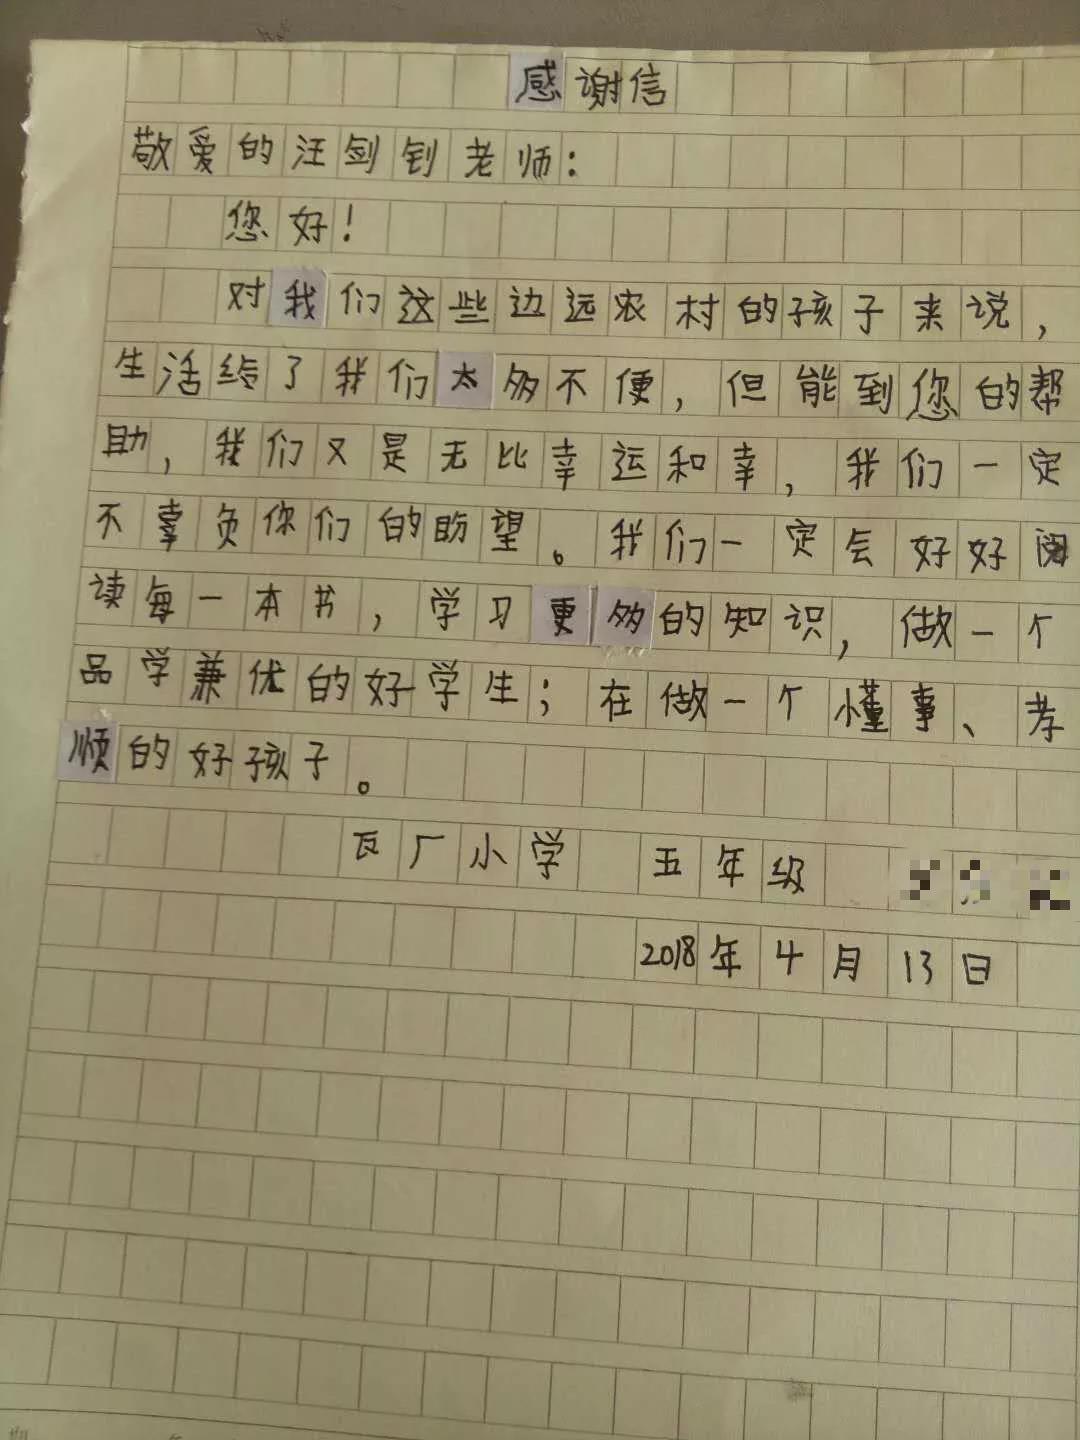 感谢信
敬爱的汪剑钊老师：
您好！
对我们这些边远农村的孩子来说，
生活给了我们太多不便，但能到您的帮
助，我们又是无比幸运和幸，我们一定
不辜负你们的盼望。我们一定会好好阅
读每一本书，学习更多的知识，做一个
品学兼优的好学生；在做一个懂事、孝
顺的好孩子。
瓦厂小学 五年级
2018年4月13日